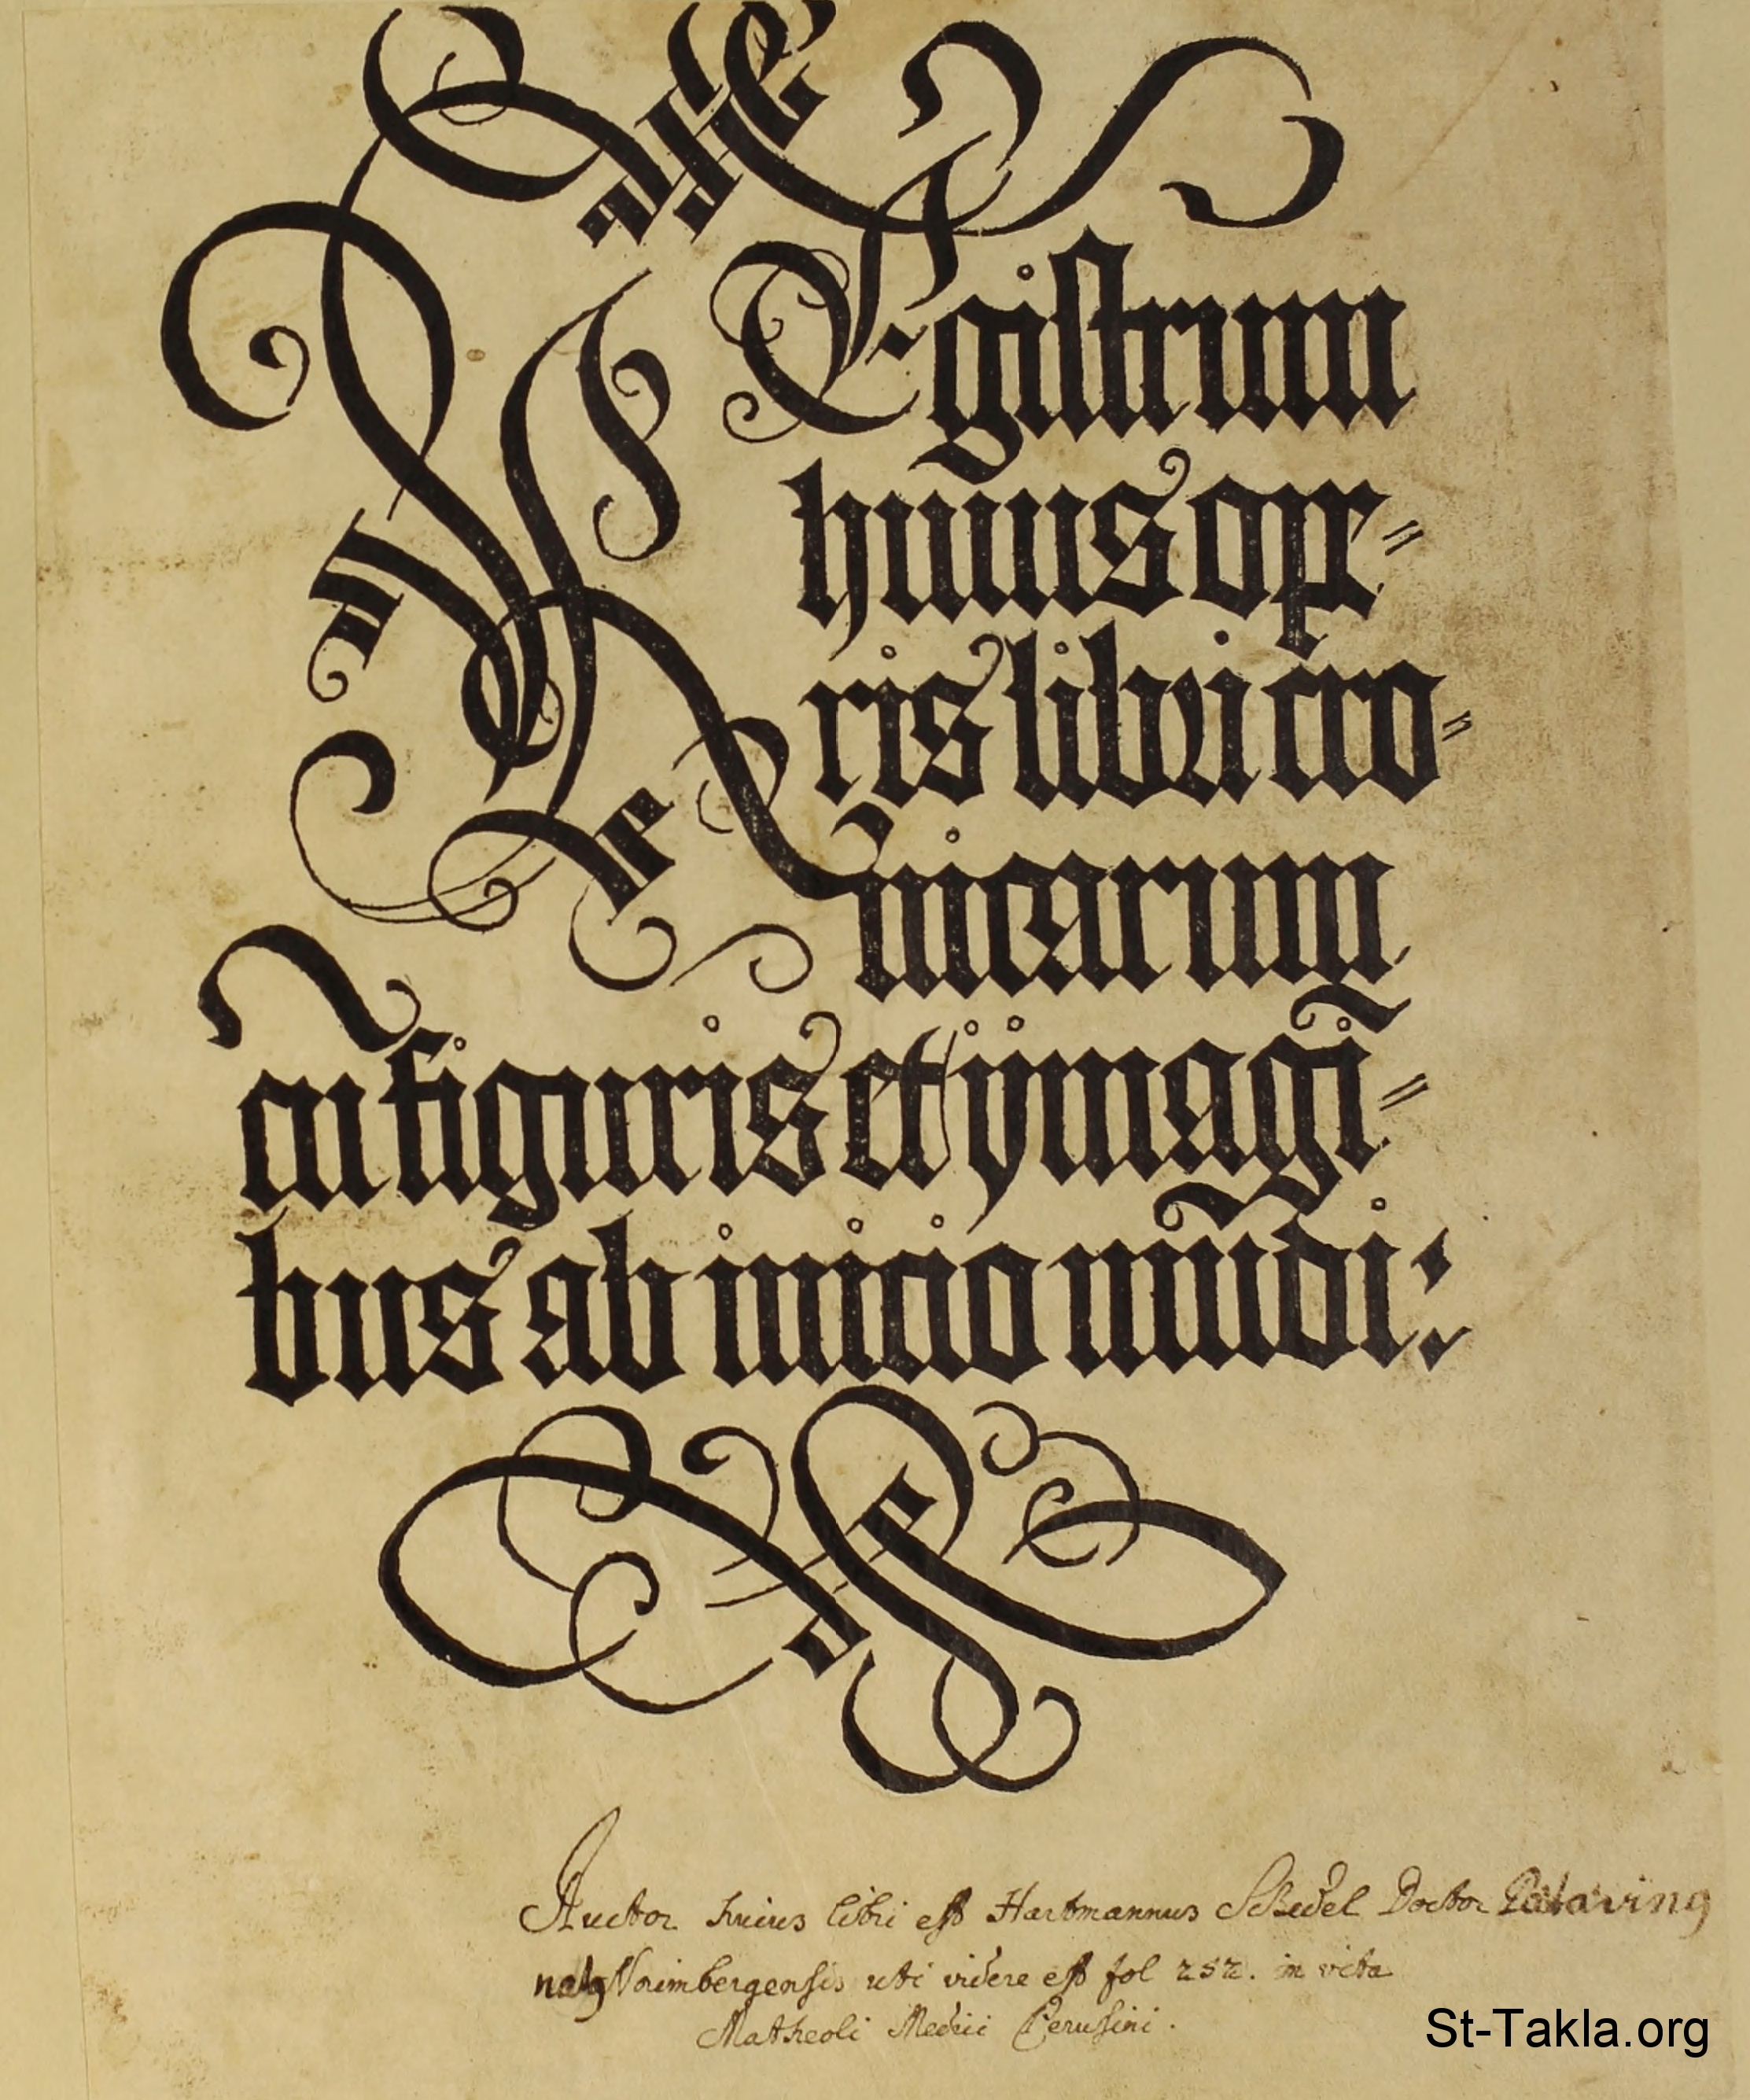 REgistrum
huius ope=
ris libri cro=
nicarum
cū figuris et ijmagi=
bus ab inicio mūdi:
Auctor huius libri est Hartmannus Schedel Doctor Patavinꝯ
natꝯ Norimbergensis uti videre est fol 252. in vita
Matheoli Medici Perusini.
St-Takla.org